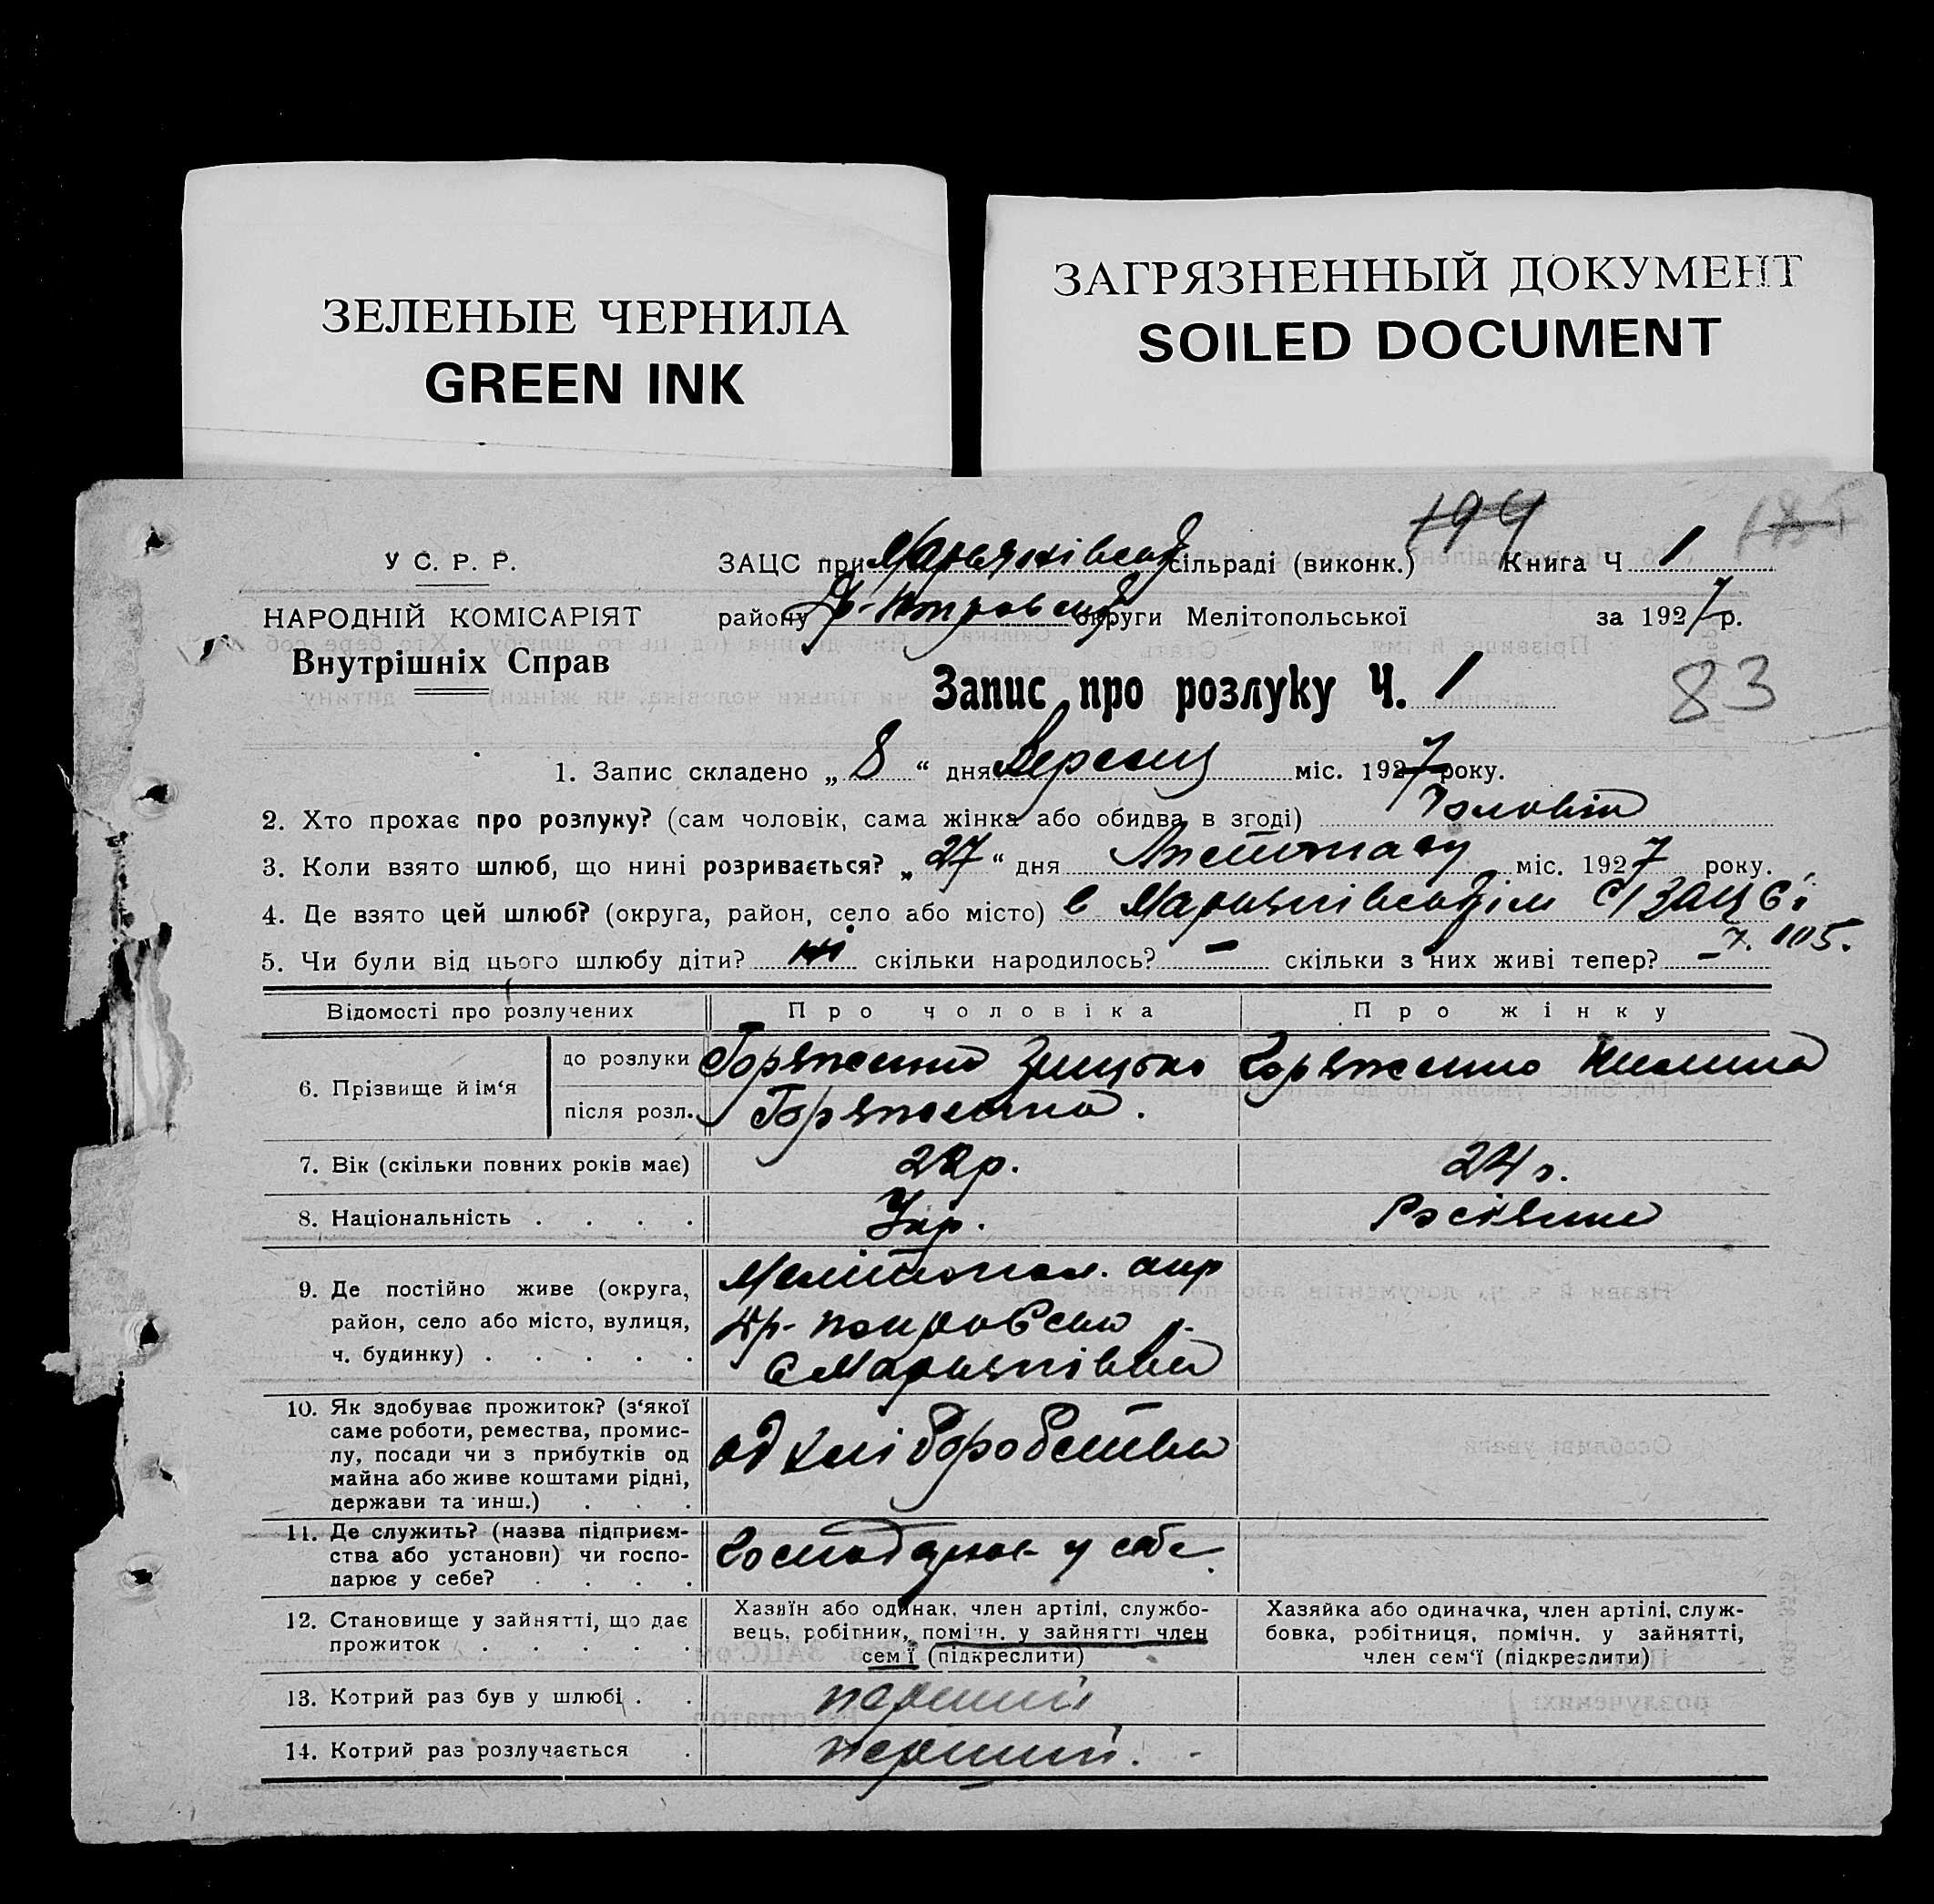 ЗЕЛЕНЫЕ ЧЕРНИЛА
GREEN INK
ЗАГРЯЗНЕННЫЙ ДОКУМЕНТ
SOILED DOCUMENT
194
У С. Р. Р.
ЗАЦС при сільраді (виконк.) Книга Ч 1
НАРОДНІЙ КОМІСАРІЯТ
району округи Мелітопольської за 1927 р.
Внутрішніх Справ
Запис про розлуку Ч. 1
83
1. Запис складено „ 8 “ дня Вересня міс. 1927 року.
2. Хто прохає про розлуку? (сам чоловік, сама жінка або обидва в згоді) Чоловік
3. Коли взято шлюб, що нині розривається? „ 27 “ дня міс. 1927 року.
4. Де взято цей шлюб? (округа, район, село або місто) в
5. Чи були від цього шлюбу діти? ні скільки народилось? – скільки з них живі тепер? –
Відомості про розлучених
Про чоловіка
Про жінку
6. Прізвище й ім‘я
до розлуки
після розл.
7. Вік (скільки повних років має) 22р. 24 р.
8. Національність . . . . Укр.
9. Де постійно живе (округа, район, село або місто, вулиця, ч. будинку) . . . . .
Мелітопол. окр
с Мар'янівка
10. Як здобуває прожиток? (з‘якої саме роботи, ремества, промислу, посади чи з прибутків од майна або живе коштами рідні, держави та инш.) . . .
од хліборобства
11. Де служить? (назва підприємства або установи) чи господарює у себе? . . . .
Господарює у себе.
12. Становище у зайнятті, що дає прожиток . . . . .
Хазяїн або одинак, член артілі, службовець, робітник, помічн. у зайнятті член сем‘ї (підкреслити)
Хазяйка або одиначка, член артілі, службовка, робітниця, помічн. у зайнятті, член сем‘ї (підкреслити)
13. Котрий раз був у шлюбі . . перший
14. Котрий раз розлучається . перший.